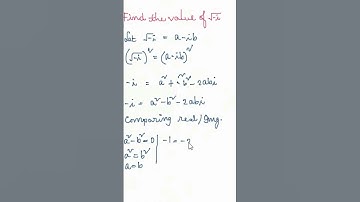 Find the value of √-i
Let √-i = a-ib
(√-i)² = (a-ib)²
-i = a²+i²b²-2abi
-i = a²-b²-2abi
Comparing real/Img.
a²-b²=0 | -1=-2
a²=b²
a=b